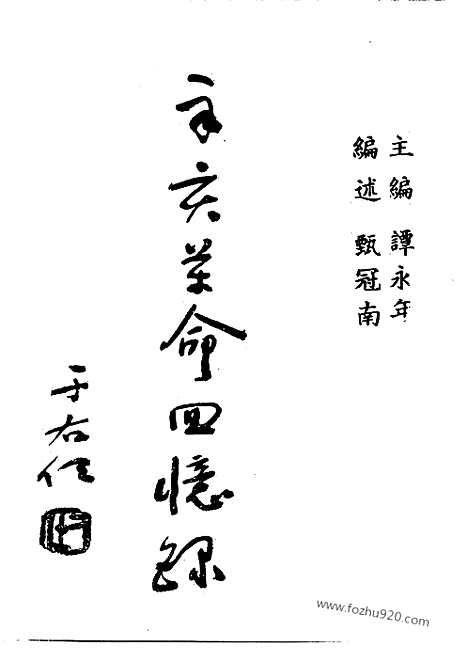 主編 譚永年
編述 甄冠南
辛亥革命回憶錄
于右任
www.fozhu920.com